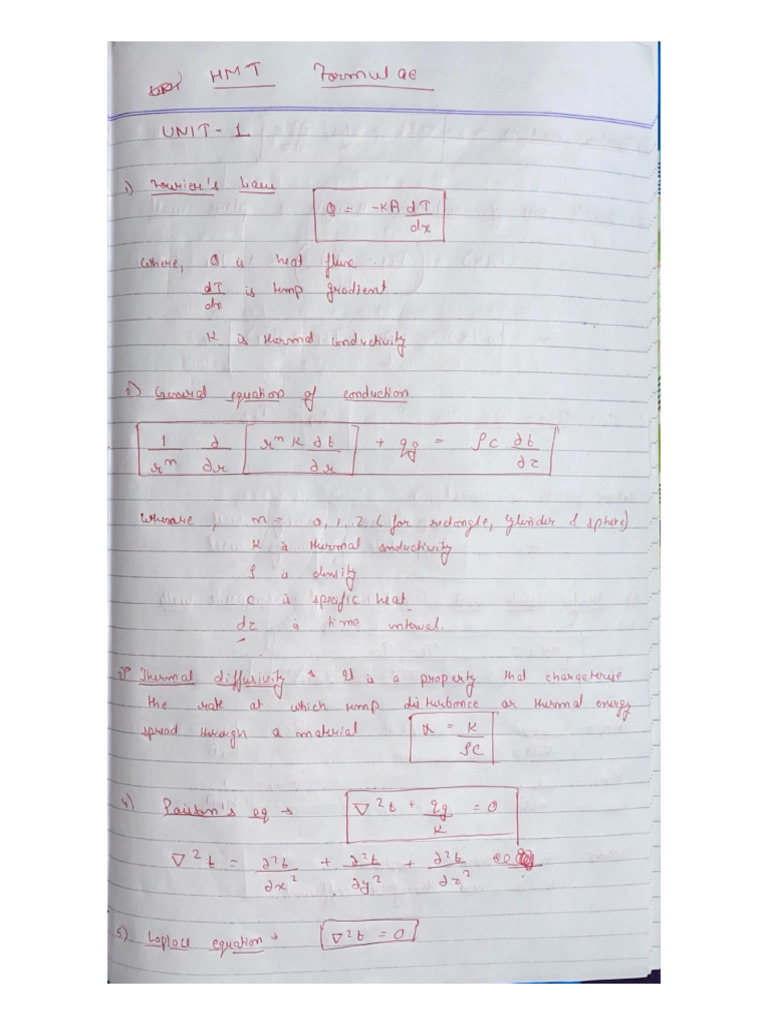 HMT Formulae
UNIT-1
1) Fourier's Law
Q = -KA dT/dx
where, Q is heat flux
dT/dx is temp gradient.
K is thermal conductivity
2) General equation of conduction
1/r^n ∂/∂r [r^n K ∂t/∂r] + qg = ρc ∂t/∂z
where , n = 0, 1, 2 (for rectangle, cylinder & sphere)
K is thermal conductivity
ρ is density
c is specific heat
dz is time interval.
Thermal diffusivity → It is a property that chargeterise
the rate at which temp disturbance or thermal energy
spread through a material α = K/ρC
4) Poison's eq → ∇²t + qg/K = 0
∇²t = ∂²t/∂x² + ∂²t/∂y² + ∂²t/∂z²
5) Laplace equation → ∇²t = 0